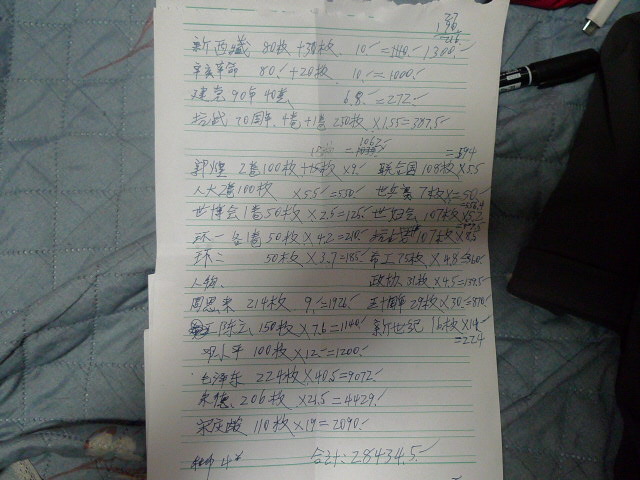 27
216
新西藏 80枚+30枚 10.=1300.
辛亥革命 80.+20枚. 10.=1000.
建党90年 40套 6.8.=272.
抗战70周年. 4卷+1卷 250枚 ×1.55=387.5
=1062. =594
敦煌 2卷100枚+15枚×9. 联合国108枚×5.5
人大2卷100枚 ×5.5=550. 世乒赛7枚×=50.
世博会1卷50枚×2.5=125. 世妇会107枚×5.2
环一 1卷50枚×4.2=210. 107枚×8.5
环二 50枚×3.7=185. 75枚×4.8=360.
人物. 政协31枚×4.5=139.5
周恩来 214枚. 9.=1926. 29枚×30=870.
陈云 150枚×7.6=1140. 新世纪16枚×14
=224
邓小平 100枚×12=1200.
毛泽东 224枚×40.5=9072.
朱德. 206枚×21.5=4429.
宋庆龄 110枚×19=2090.
合计:28434.5.